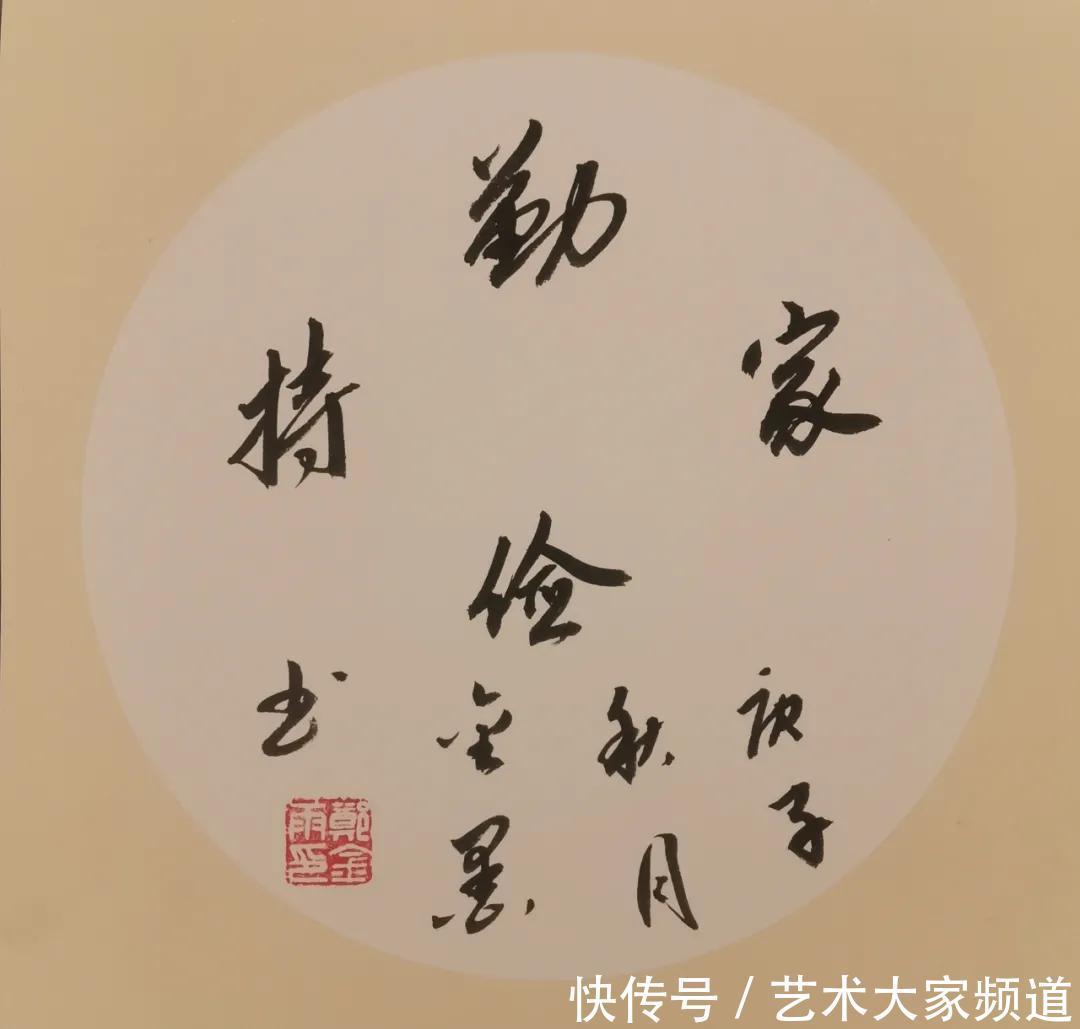 勤俭持家
庚子
秋月
金墨
书
鄭金
雨印
快传号 / 艺术大家频道